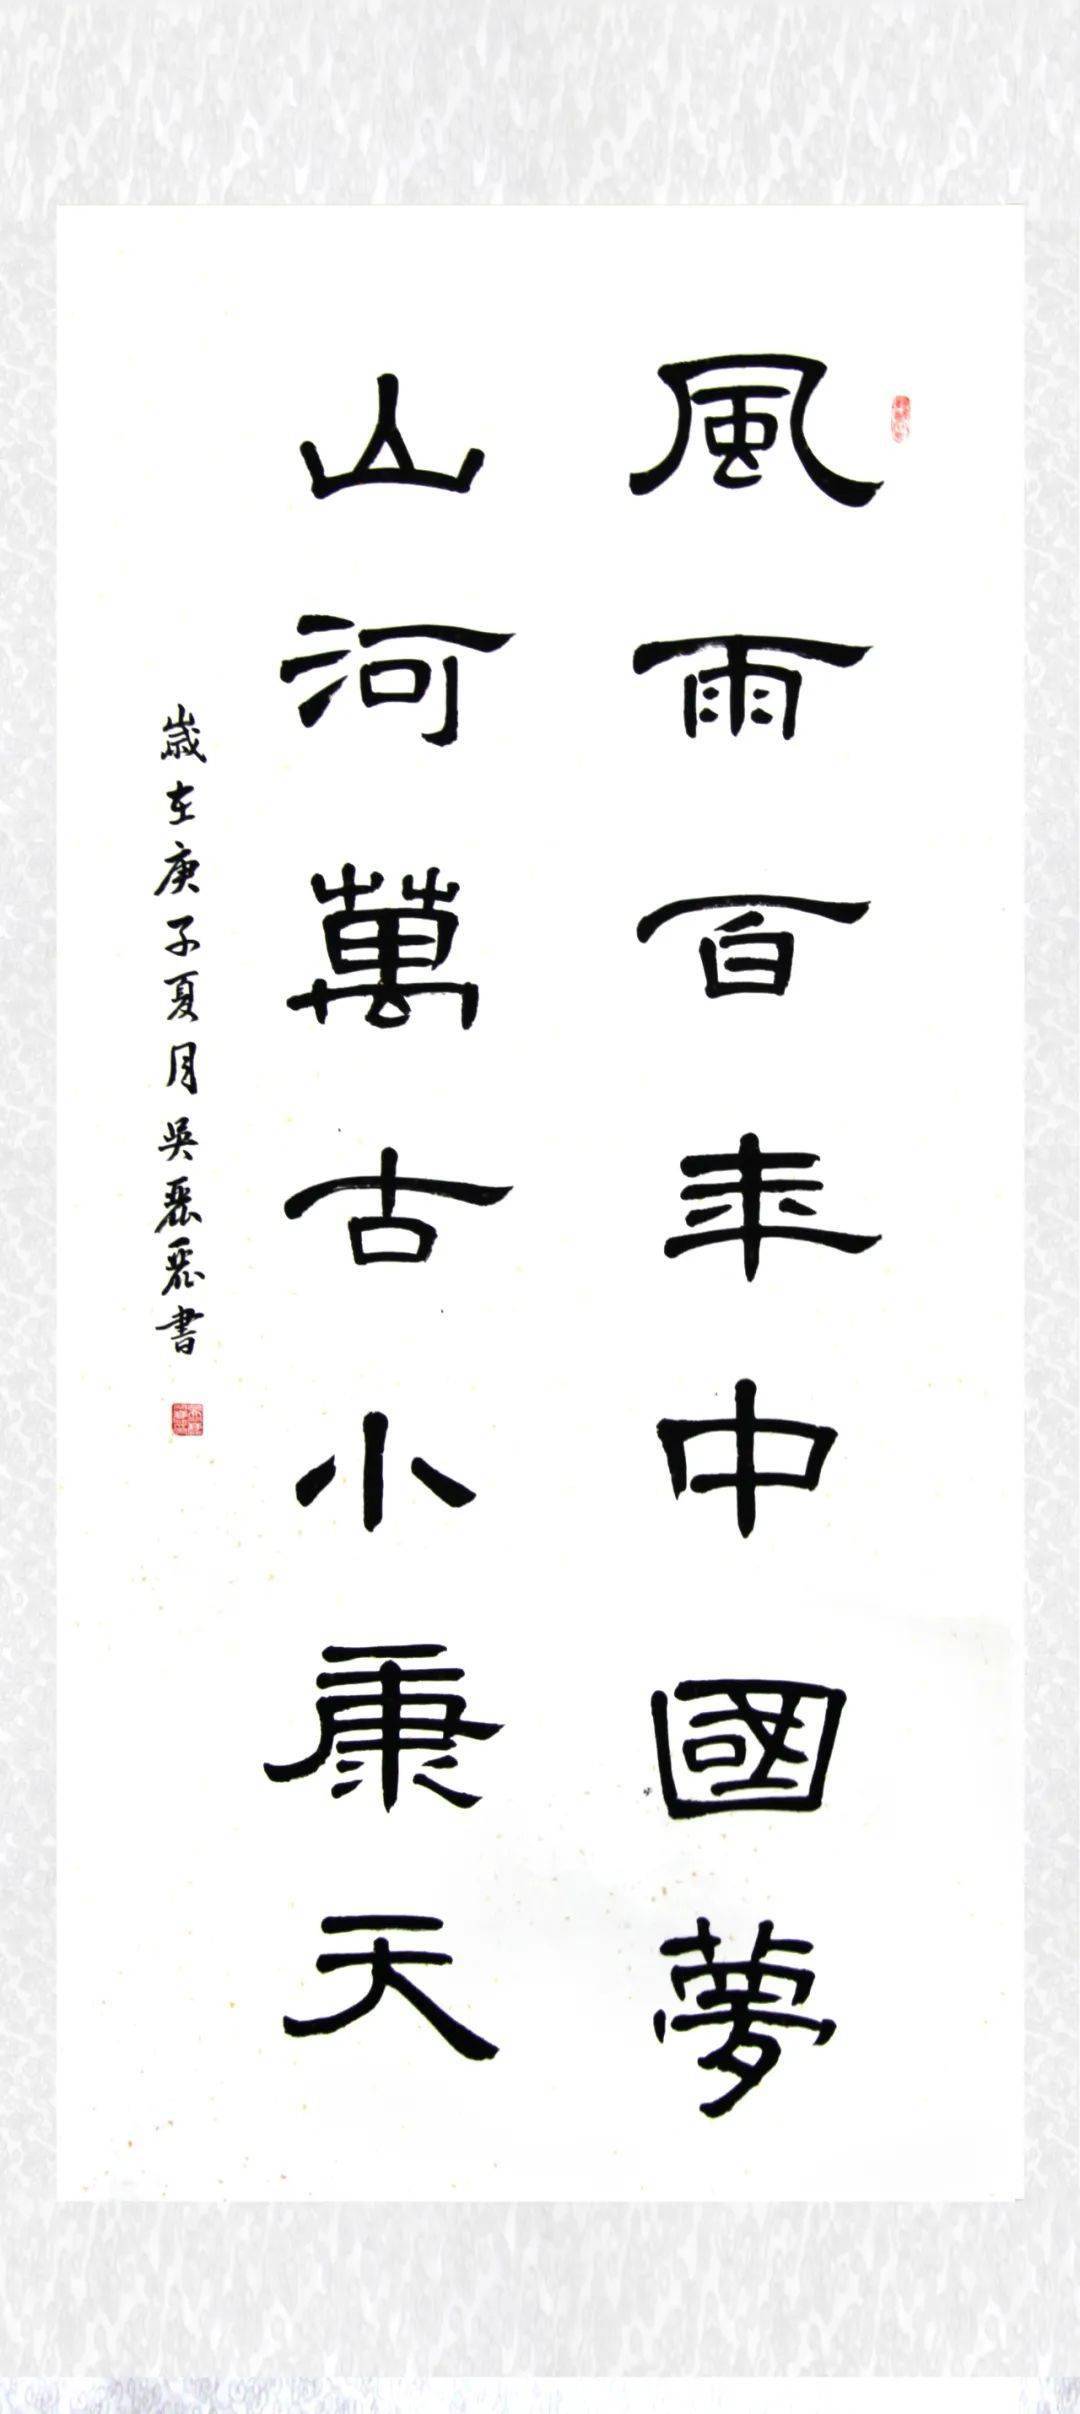 風雨百年中國夢
山河萬古小康天
歲在庚子夏月吳麗麗書